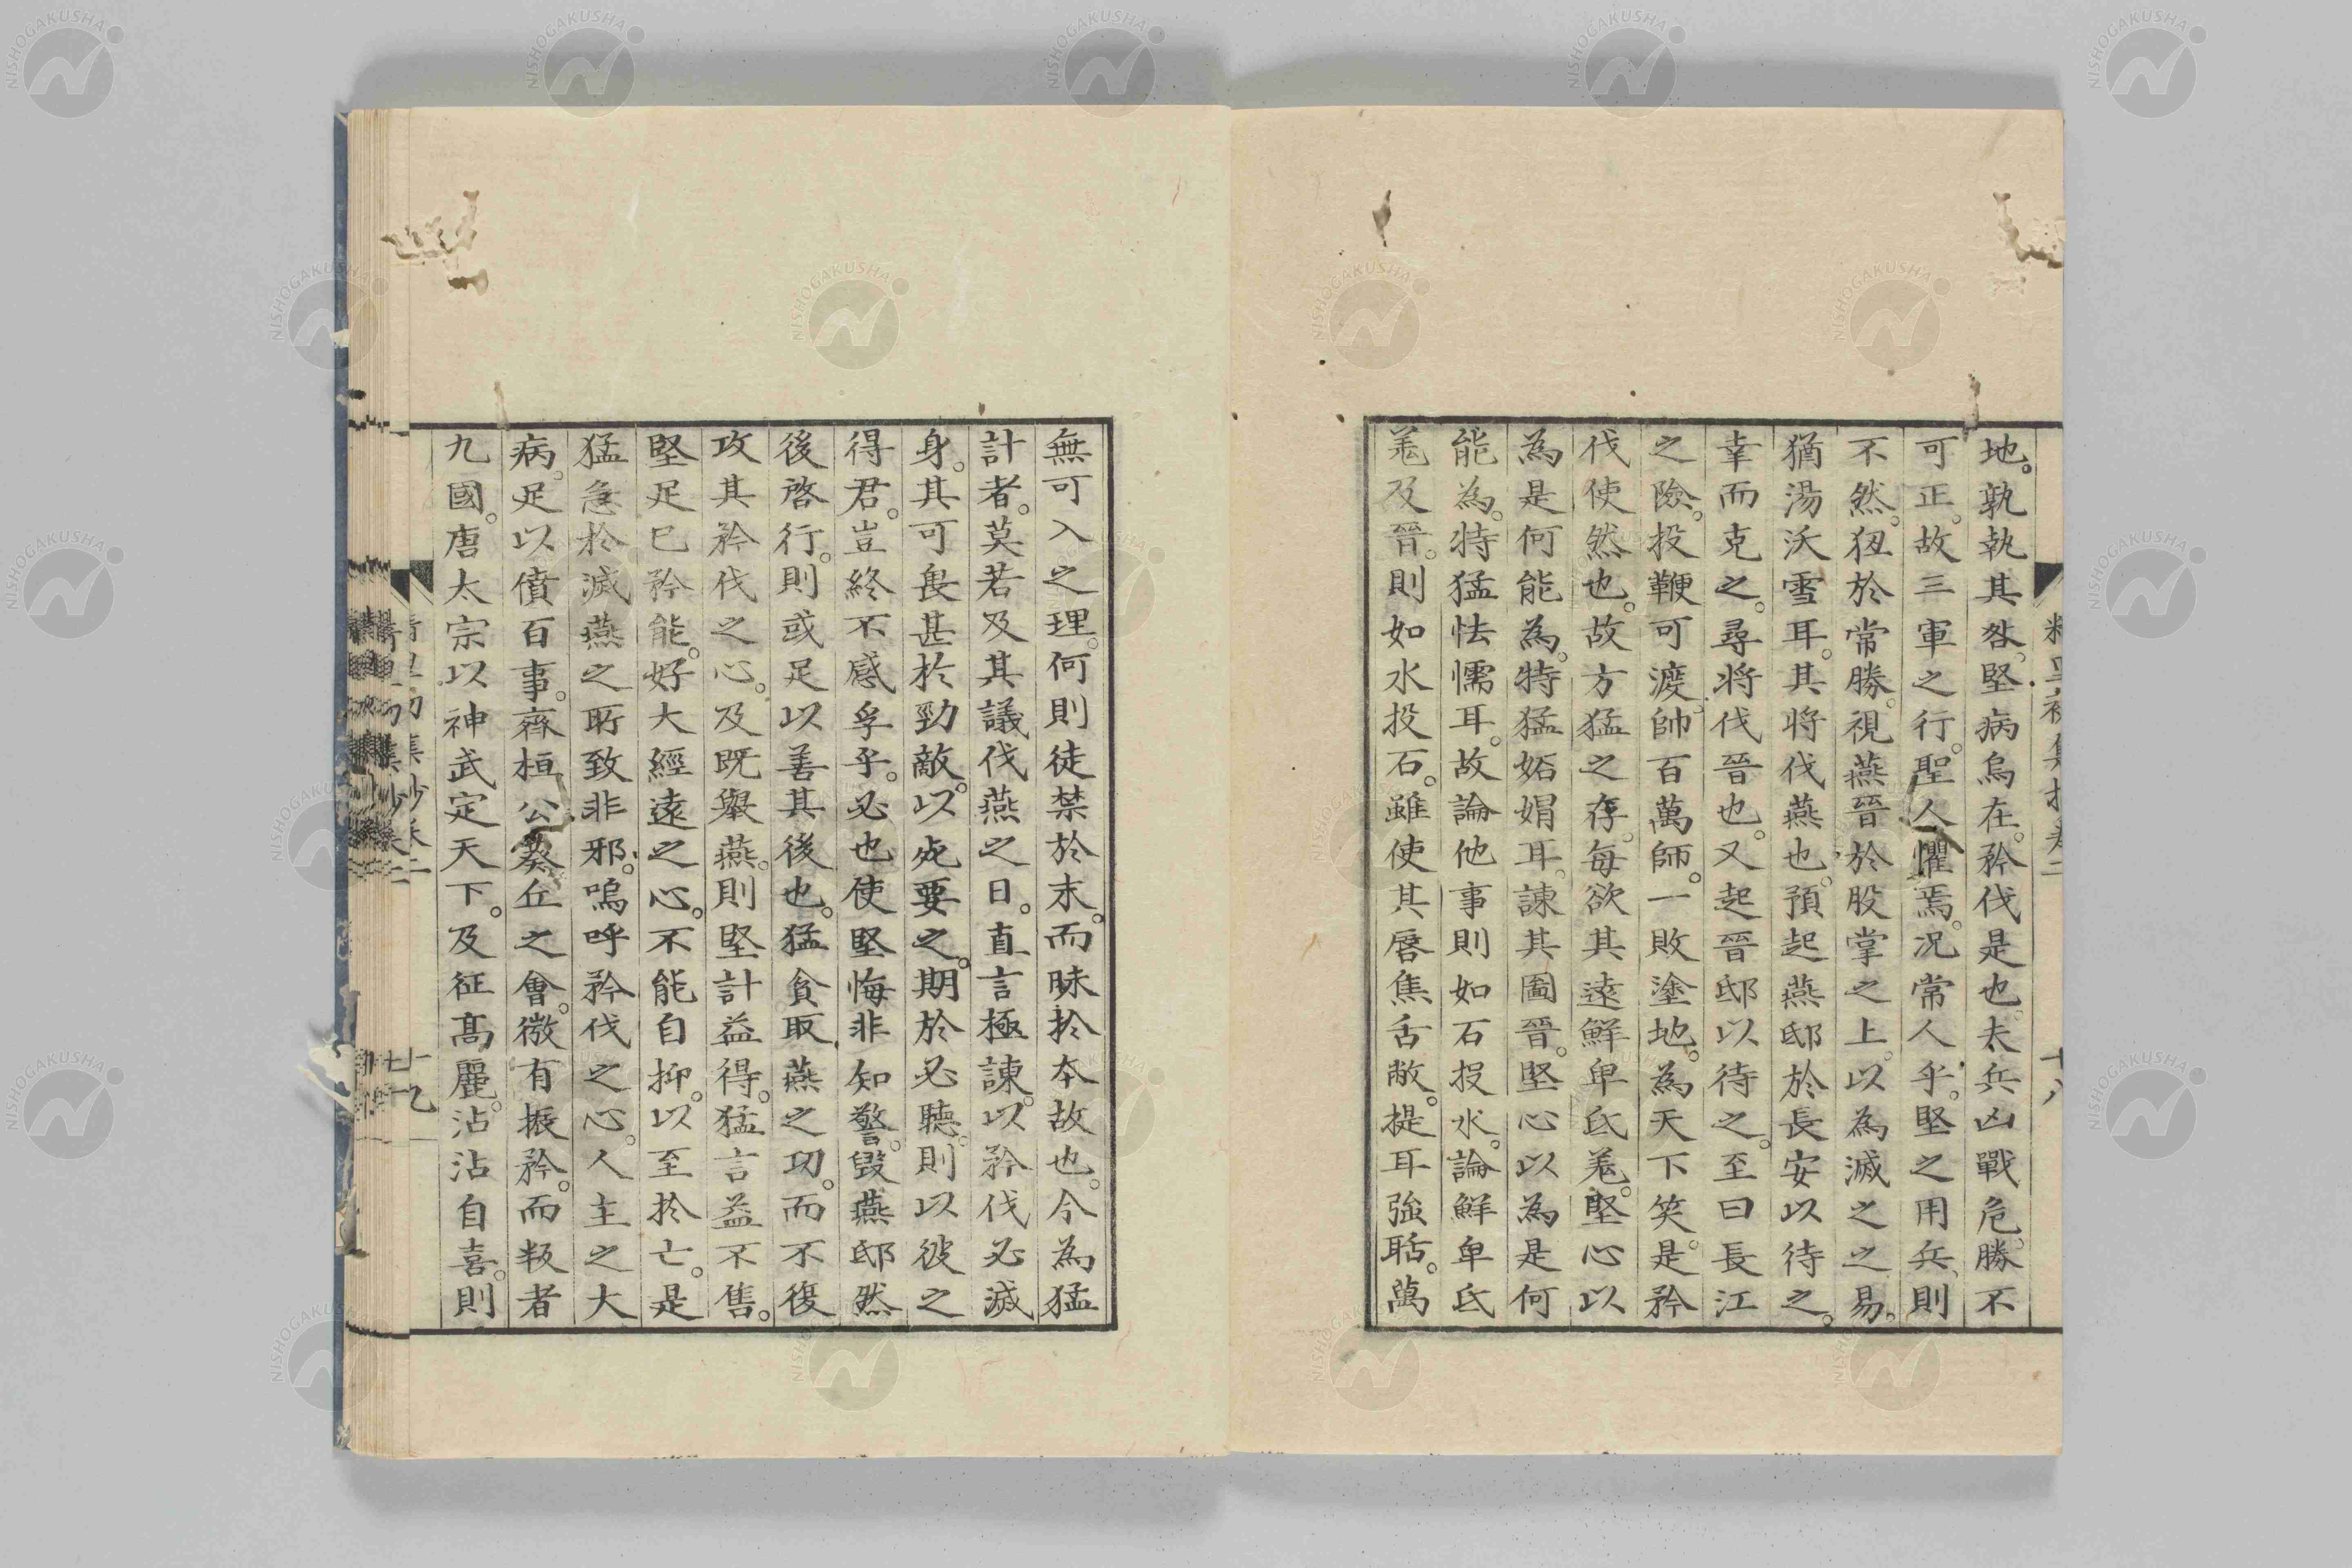 地。孰執其咎。堅病烏在。矜伐是也。夫兵凶戰危。勝不
可正。故三軍之行。聖人懼焉。況常人乎。堅之用兵、則
不然。狃於常勝。視燕晉於股掌之上。以為滅之之易。
猶湯沃雪耳。其將伐燕也。預起燕邸於長安以待之。
幸而克之。尋將伐晉也。又起晉邸以待之。至曰長江
之險。投鞭可渡。帥百萬師。一敗塗地。為天下笑。是矜
伐使然也。故方猛之存。每欲其遠鮮卑氐羌。堅心以
為是何能為。特猛妬娼耳。諫其圖晉。堅心以為是何
能為。特猛怯懦耳。故論他事則如石投水。論鮮卑氐
羌及晉。則如水投石。雖使其唇焦舌敝。提耳強聒。萬
無可入之理。何則徒禁於末。而昧於本故也。今為猛
計者。莫若及其議伐燕之日。直言極諫。以矜伐必滅
身。其可畏甚於勁敵。以死要之。期於必聽。則以彼之
得君。豈終不感孚乎。必也使堅悔非知警。毀燕邸然
後啓行。則或足以善其後也。猛貪取燕之功。而不復
攻其矜伐之心。及既舉燕。則堅計益得。猛言益不售。
堅足已矜能。好大經遠之心。不能自抑。以至於亡。是
猛急於滅燕之所致非邪。嗚呼矜伐之心。人主之大
病。足以僨百事。齊桓公葵丘之會。微有振矜。而叛者
九國。唐太宗以神武定天下。及征高麗。沾沾自喜。則
十九
NISHOGAKUSHA